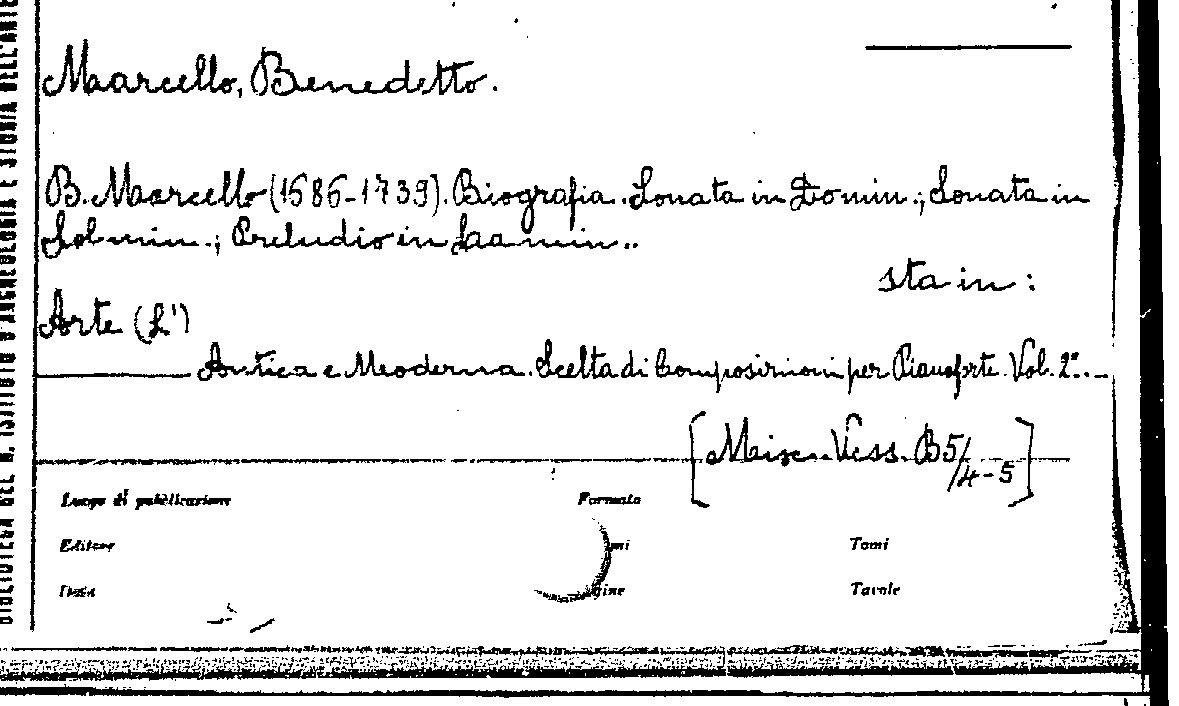 Marcello, Benedetto.
B. Marcello (1686-1739). Biografia. Sonata in Do min.; Sonata in
Sol min.; Preludio in La min..
sta in:
Arte (L')
Antica e Moderna. Scelta di Composizioni per Pianoforte. Vol. 2°.
[Misc. Vess. B5/4-5]
Luogo di pubblicazione Formato
Editore Tomi
Data Tavole
BIBLIOTECA DEL R. ISTITUTO D'ARCHEOLOGIA E STORIA DELL'ARTE